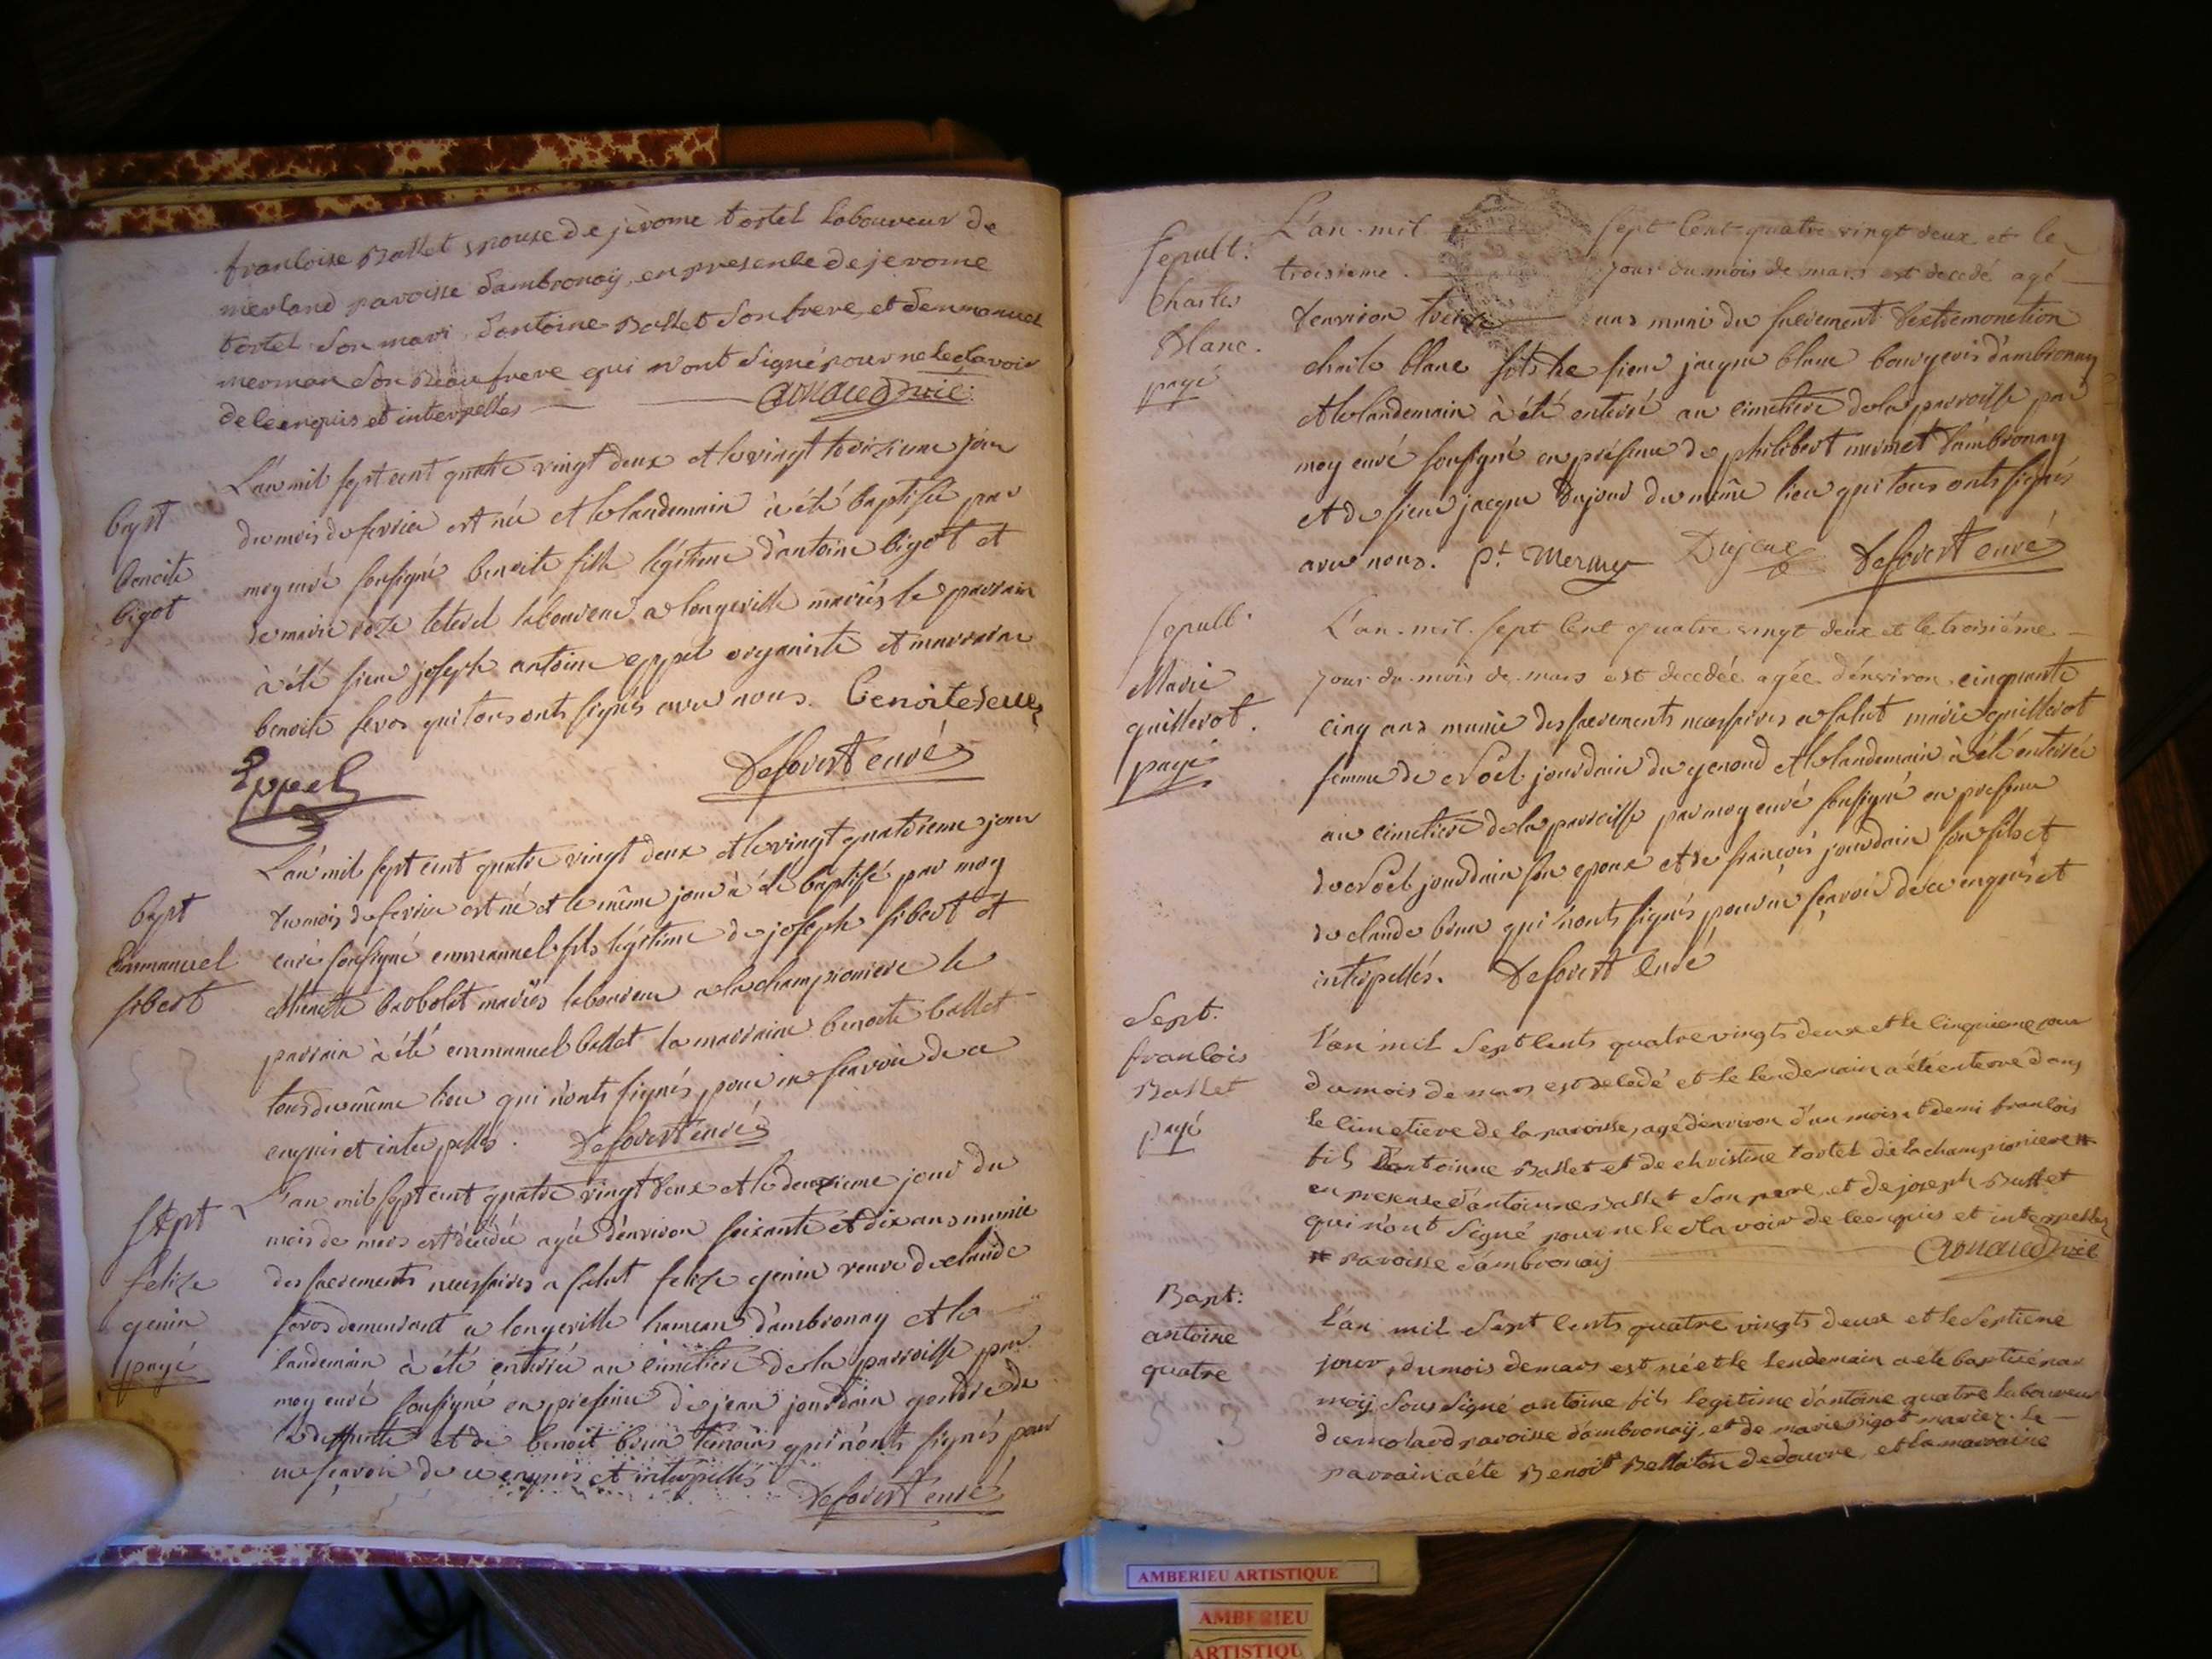 francoise Ballet epouse de jerome tortel laboureur de
merland paroisse dambronaÿ, en presence de jerome
tortel son mari, dantoine Ballet son frere, et demmanuel
merman son beau frere qui n'ont signé pour ne le sçavoir
de ce enquis et interpelles
arnaud vic:
bapt
benoite
bigot
L'an mil sept cent quatre vingt deux et le vingt troizieme jour
du mois de fevrier est née et le landemain à été baptisée par
moy curé sousigné benoite fille légitime d'antoine bigot et
de marie roze laboureur a longeville mariés le parrain
à été sieur joseph antoine eppel organiste et marraine
benoite seros qui tous onts signés avec nous. Benoite Seros
Eppel
Deforest curé
bapt
Emmanuel
sibert
L'an mil sept cent quatre vingt deux et le vingt quatrieme jour
du mois de fevrier est né et le même jour à été baptisé par moy
curé sousigné emmanuel fils légitime de joseph sibert et
benoite barbolet mariés laboureur a la championiere le
parrain à été emmanuel ballet la marraine benoite ballet
tous du même lieu qui n'onts signés pour ne sçavoir de ce
enquis et interpellés. Deforest curé
sept
felize
genin
payé
L'an mil sept cent quatre vingt deux et le deuxieme jour du
mois de mars est décédée agée d'environ soixante et dix ans munie
des sacrements necessaires a salut felize genin veuve de claude
seros demeurant a longeville hameau d'ambronay et le
landemain à été enterrée au cimetiere de la parroisse par
moy curé sousigné en presence de jean jourdain gendre de
la deffunte et de benoit brun temoins qui n'onts signés pour
ne sçavoir de ce enquis et interpellés
Deforest curé
sepult:
Charles
Blanc.
payé
L'an mil sept cent quatre vingt deux et le
troisieme jour du mois de mars est decedé agé
d'environ treize ans muni du sacrement d'extremonction
charle blanc fils de sieur jacque blanc bourgeois d'ambronay
et le landemain à été enterré au cimetiere de la parroisse par
moy curé sousigné en présence de philibert mermet d'ambronay
et de sieur jacque Dujour du même lieu qui tous onts signés
avec nous. pt. Mermet Dujour Deforest curé
sepult.
Marie
guillerot.
payé
L'an mil sept cent quatre vingt deux et le troisiéme
jour du mois de mars est decedée agée d'environ cinquante
cinq ans munie des sacrements necessaires a salut marie guillerot
femme de Noël jourdain du genoud et le landemain à été enterrée
au cimetiere de la parroisse par moy curé sousigné en presence
de Noël jourdain son epoux et de françois jourdain son fils et
de claude brun qui n'onts signés pour ne sçavoir de ce enquis et
interpellés. Deforest Curé
Sept.
francois
Ballet
payé
L'an mil Sept cents quatre vingts deux et le cinquieme jour
du mois de mars est decedé et le lendemain a été enterré dans
le cimetiere de la paroisse, agé denviron d'un mois et demi francois
fils d'antoinne Ballet et de christine tortel de la championiere #
en presence d'antoinne Ballet son pere, et de joseph Ballet
qui n'ont signé pour ne le sçavoir de ce enquis et interpelles
# paroisse d'ambronaÿ
arnaud vic
Bapt:
antoine
quatre
L'an mil Sept cents quatre vingts deux et le Septieme
jour du mois de mars est né et le lendemain a été baptisé par
moij Sous Signé antoine fils legitime d'antoine quatre laboureur
du molard paroisse dambronaÿ, et de marie Bigot mariez. Le
parrain a été Benoit Bellaton dedouvre, et la marraine
AMBERIEU ARTISTIQUE
AMBERIEU
ARTISTIQU